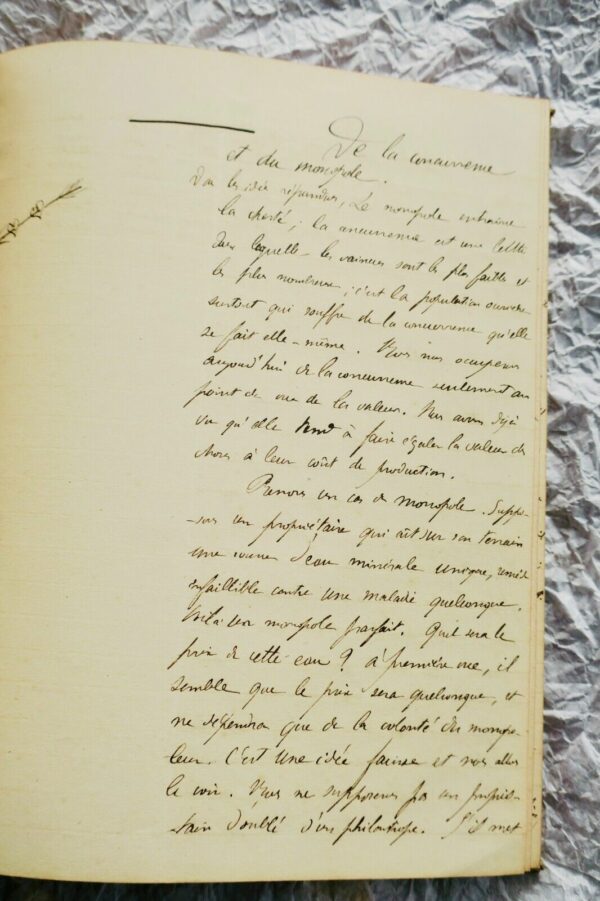 De la concurrence
et du monopole.
Dans les idées répandues, le monopole entraîne
la cherté ; la concurrence est une lutte
dans laquelle les vaincus sont les plus faibles et
les plus nombreux ; c'est la population ouvrière
surtout qui souffre de la concurrence qu'elle
se fait elle-même. Nous nous occuperons
aujourd'hui de la concurrence seulement au
point de vue de la valeur. Nous avons déjà
vu qu'elle tend à faire égaler la valeur des
choses à leur coût de production.
Prenons un cas de monopole. Suppo-
-sons un propriétaire qui ait sur son terrain
une source d'eau minérale unique, remède
infaillible contre une maladie quelconque.
Voilà un monopole parfait. Quel sera le
prix de cette eau ? à première vue, il
semble que le prix sera quelconque, et
ne dépendra que de la volonté du monopo-
leur. C'est une idée fausse et nous allons
le voir. Nous ne supposons pas un proprié-
-taire doublé d'un philanthrope. S'il met